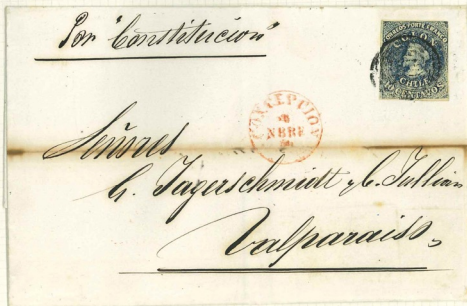 Por "Constitucion"
CORREOS PORTE FRANCO
COLON
CHILE
10 CENTAVOS
CONCEPCION
NBRE
Señores
G. Jagerschmidt y C. Jullian
Valparaiso